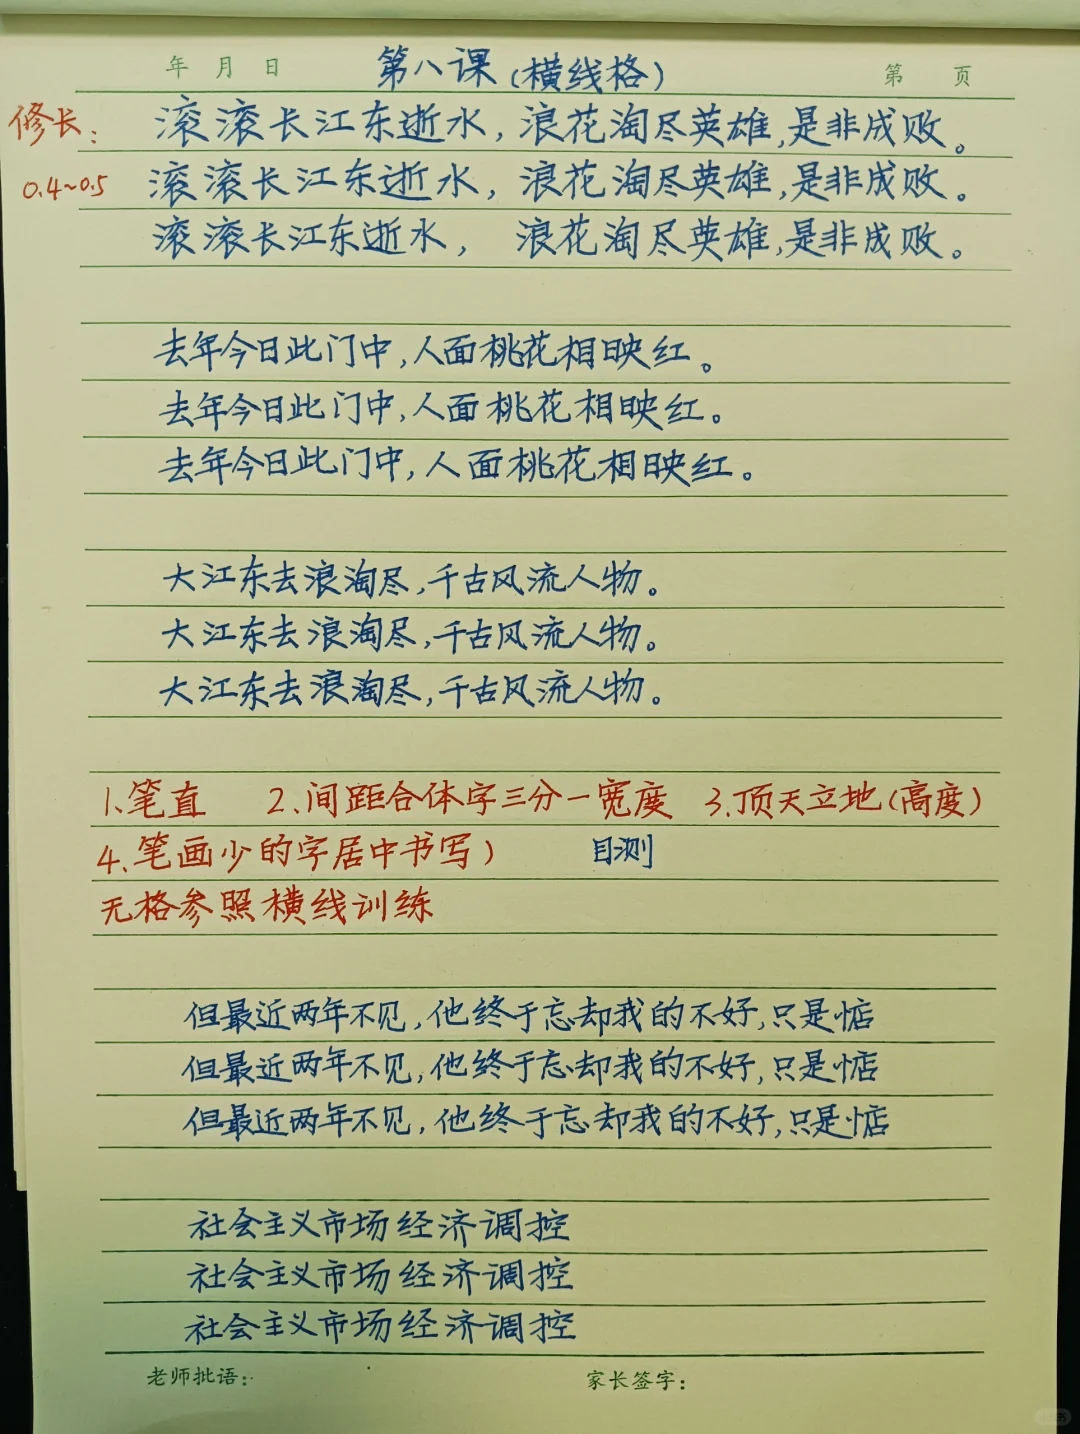 年 月 日 第八课(横线格) 第 页
修长: 滚滚长江东逝水,浪花淘尽英雄,是非成败。
0.4~0.5 滚滚长江东逝水,浪花淘尽英雄,是非成败。
滚滚长江东逝水,浪花淘尽英雄,是非成败。
去年今日此门中,人面桃花相映红。
去年今日此门中,人面桃花相映红。
去年今日此门中,人面桃花相映红。
大江东去浪淘尽,千古风流人物。
大江东去浪淘尽,千古风流人物。
大江东去浪淘尽,千古风流人物。
1、笔直 2、间距合体字三分一宽度 3、顶天立地(高度)
4、笔画少的字居中书写) 目测
无格参照横线训练
但最近两年不见,他终于忘却我的不好,只是惦
但最近两年不见,他终于忘却我的不好,只是惦
但最近两年不见,他终于忘却我的不好,只是惦
社会主义市场经济调控
社会主义市场经济调控
社会主义市场经济调控
老师批语: 家长签字: